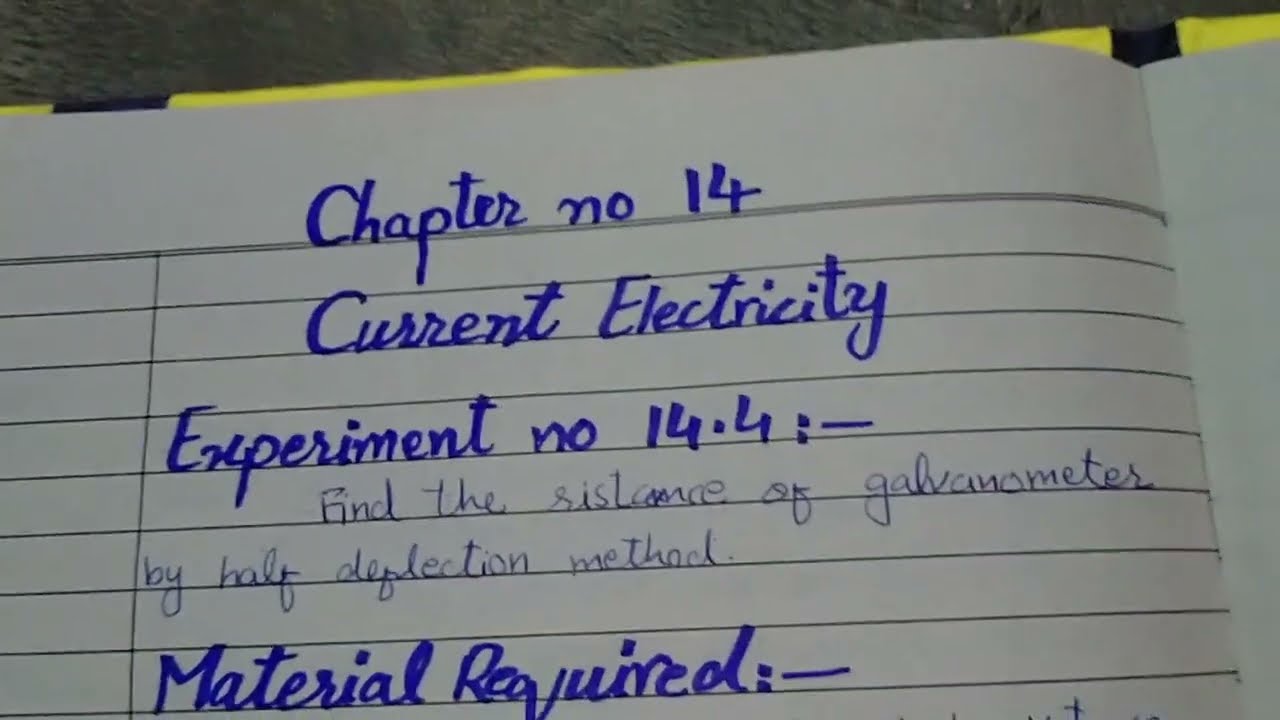 Chapter no 14
Current Electricity
Experiment no 14.4:-
Find the sistance of galvanometer
by half deflection method.
Material Required:-